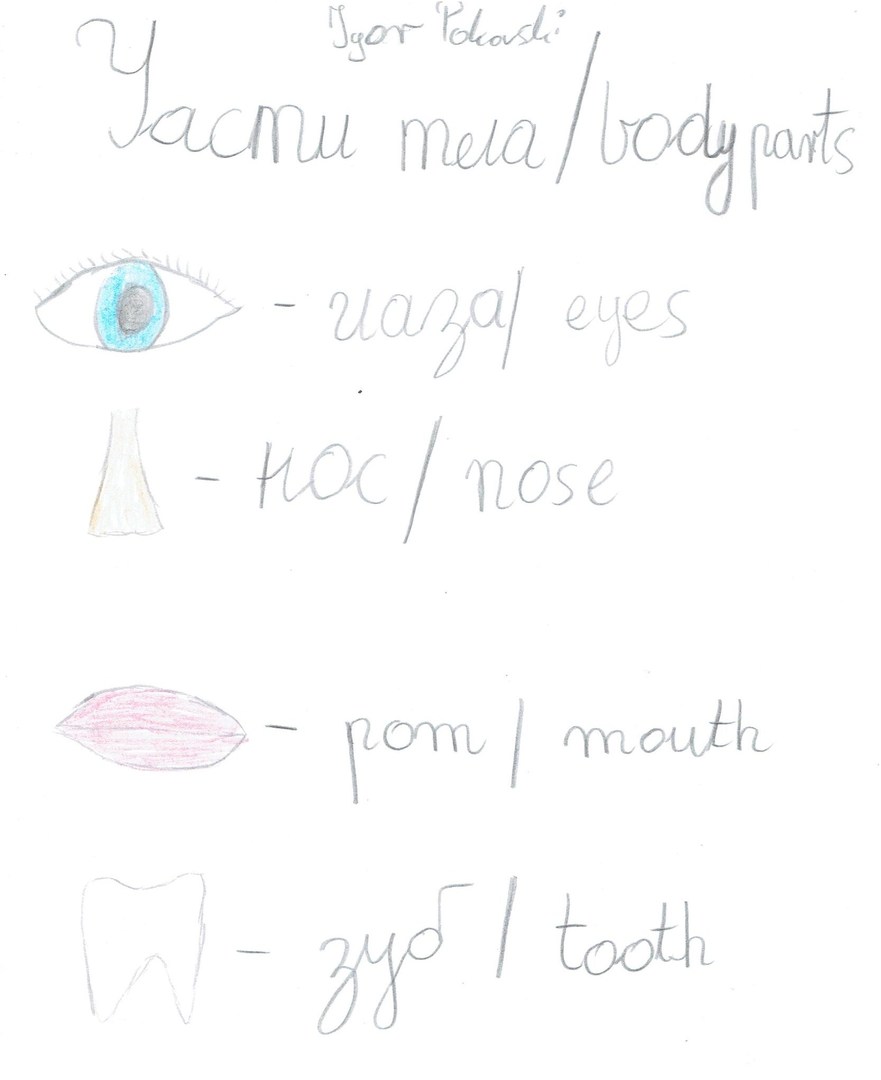 Igor Pokorski
Части тела / body parts
- глаза / eyes
- нос / nose
- рот / mouth
- зуб / tooth